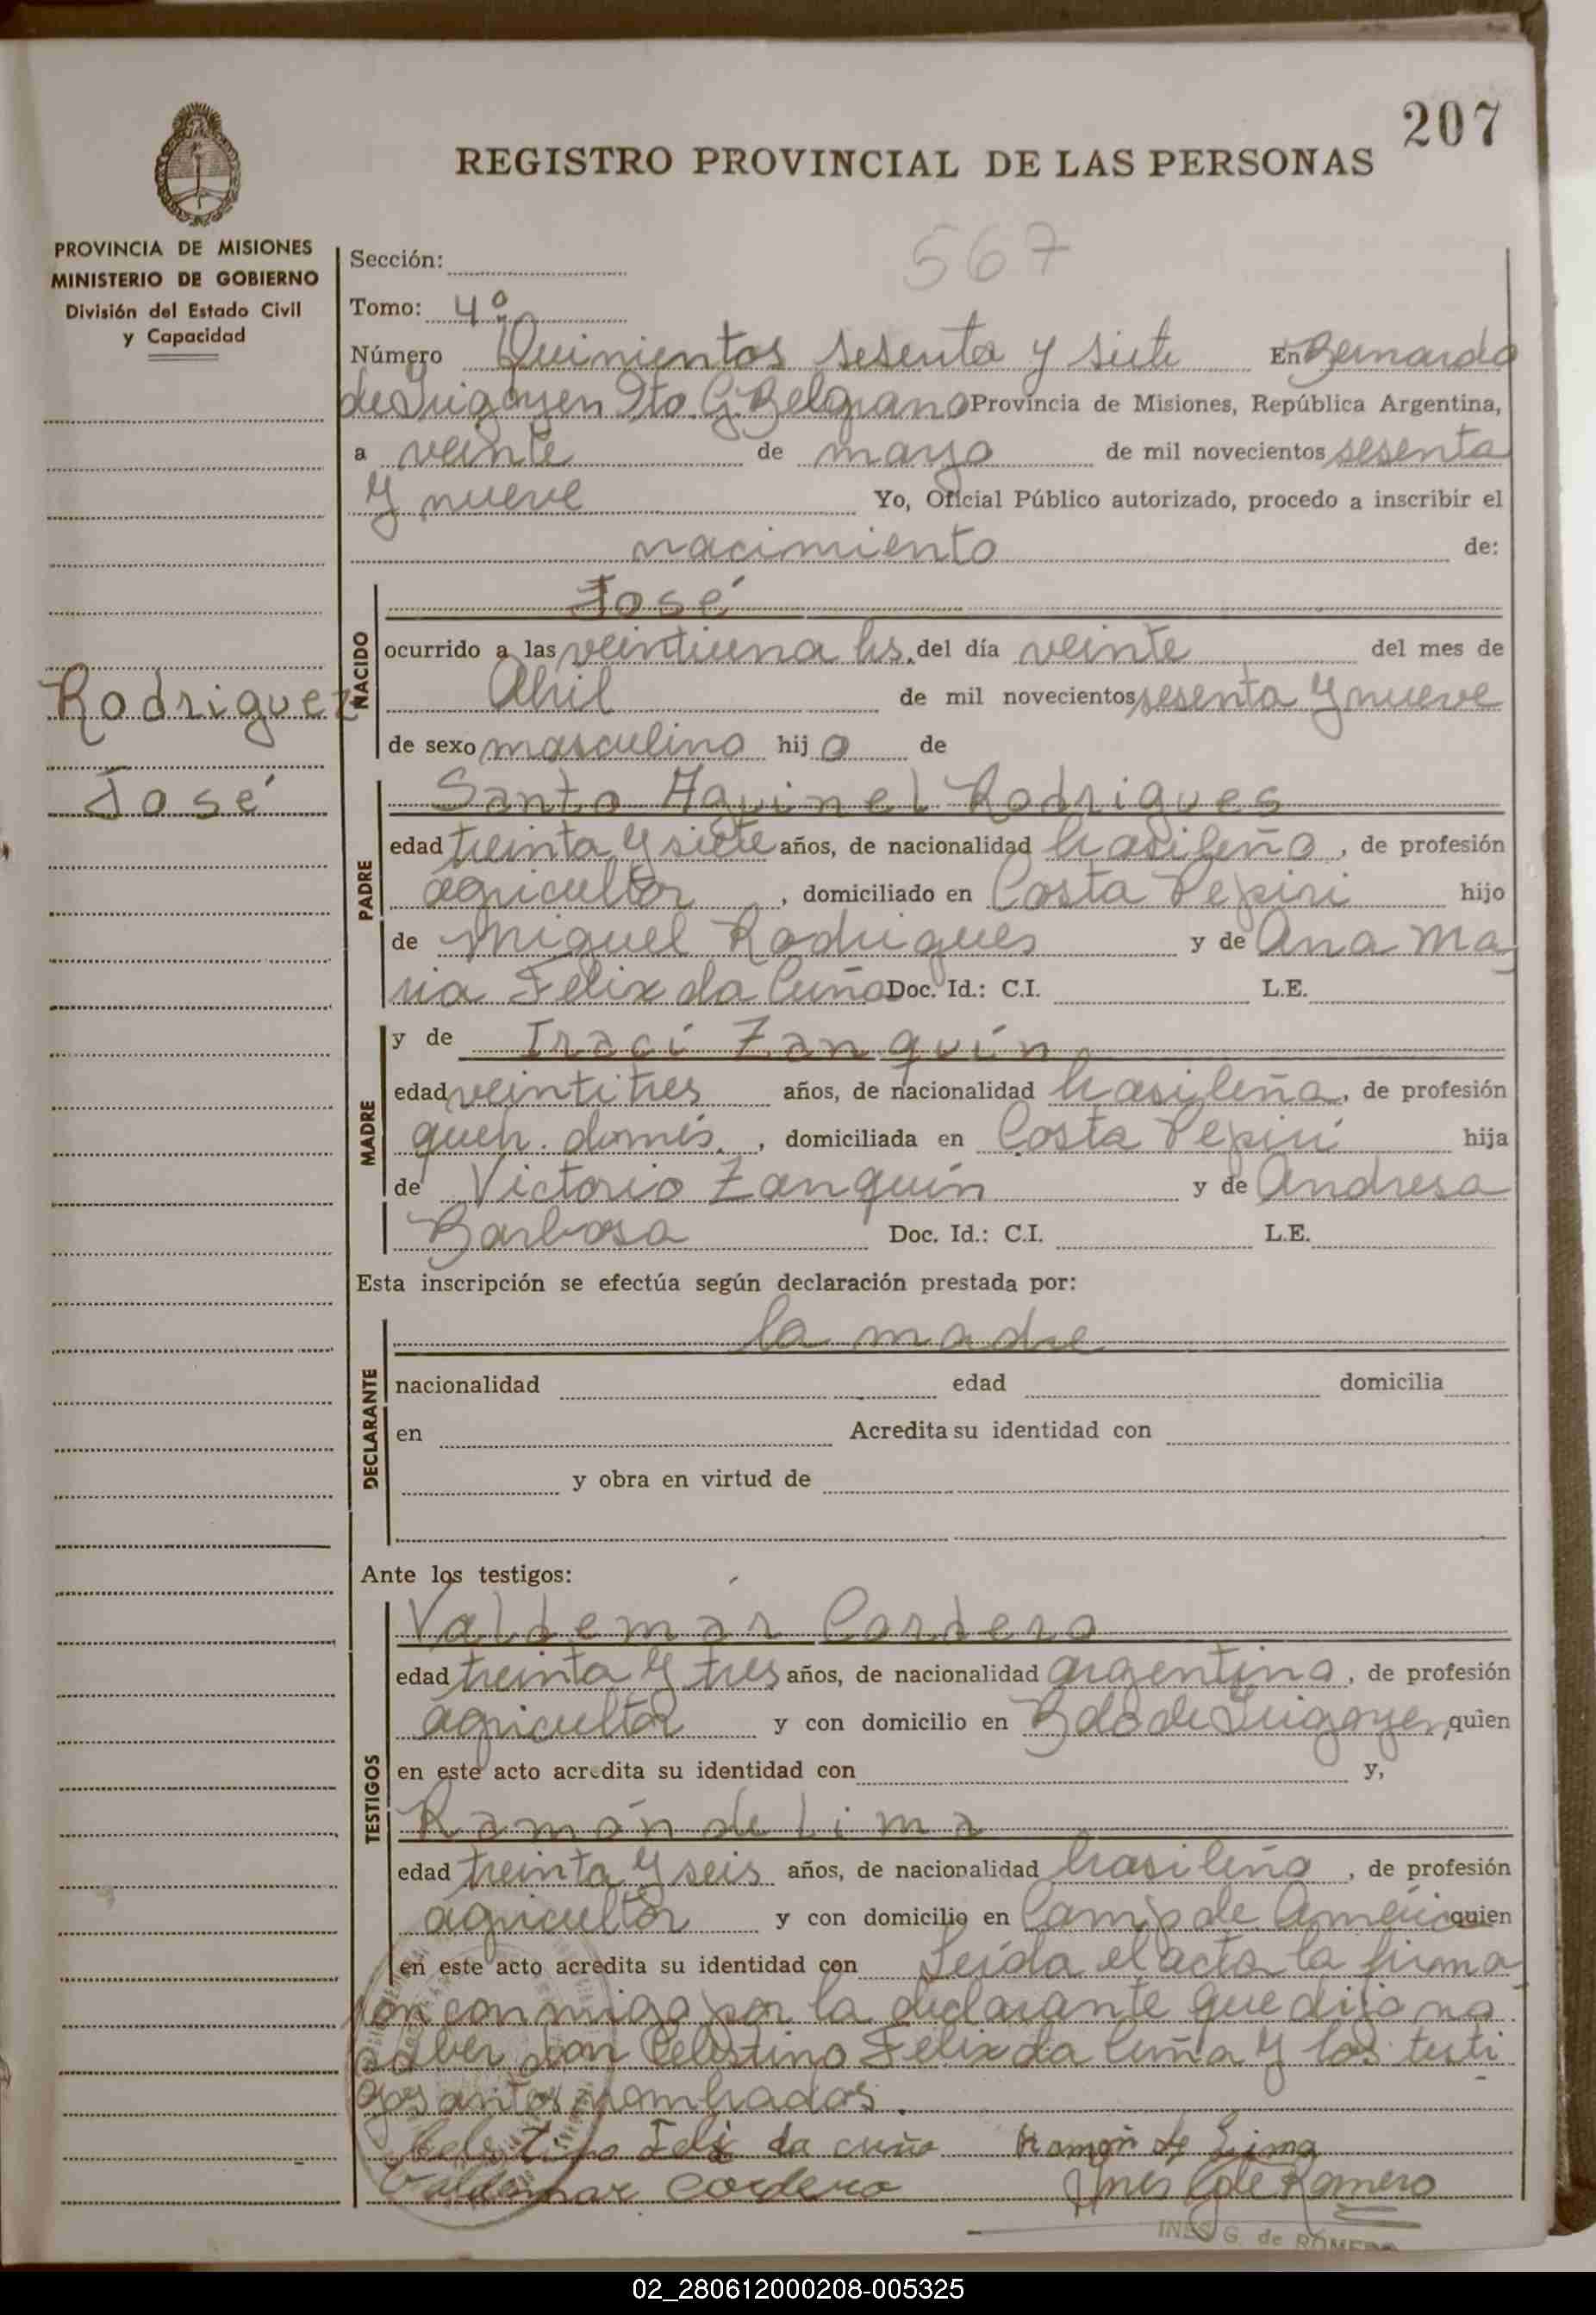 207
REGISTRO PROVINCIAL DE LAS PERSONAS
PROVINCIA DE MISIONES
MINISTERIO DE GOBIERNO
División del Estado Civil
y Capacidad
567
Sección:
Tomo: 4º
Número Quinientos sesenta y siete En Bernardo
de Irigoyen Dto. G. Belgrano Provincia de Misiones, República Argentina,
a veinte de mayo de mil novecientos sesenta
y nueve Yo, Oficial Público autorizado, procedo a inscribir el
nacimiento de:
Rodriguez
José
NACIDO
José
ocurrido a las veintiuna hs. del día veinte del mes de
Abril de mil novecientos sesenta y nueve
de sexo masculino hijo de
PADRE
Santo Aquinel Rodrigues
edad treinta y siete años, de nacionalidad brasileño, de profesión
agricultor, domiciliado en Costa Pepiri hijo
de Miguel Rodrigues y de Ana Ma
ria Felix da Cuña Doc. Id.: C.I. L.E.
MADRE
y de Iraci Zanquín
edad veintitres años, de nacionalidad brasileña, de profesión
queh. domés., domiciliada en Costa Pepirí hija
de Victorio Zanquín y de Andresa
Barbosa Doc. Id.: C.I. L.E.
Esta inscripción se efectúa según declaración prestada por:
DECLARANTE
la madre
nacionalidad edad domicilia
en Acredita su identidad con
y obra en virtud de
Ante los testigos:
TESTIGOS
Valdemár Cordero
edad treinta y tres años, de nacionalidad argentina, de profesión
agricultor y con domicilio en Bdo de Irigoyen, quien
en este acto acredita su identidad con y,
Ramón de Lima
edad treinta y seis años, de nacionalidad brasileño, de profesión
agricultor y con domicilio en Camp de América quien
en este acto acredita su identidad con Leída el acta la firma
ron conmigo por la declarante que dijo no
saber don Celestino Felix da Cuña y los testi
gos antes nombrados.
Celestino Feli da cuña Ramón de Lima
Valdemar Cordero Ines G de Romero
INES G. de ROMERO
02_280612000208-005325